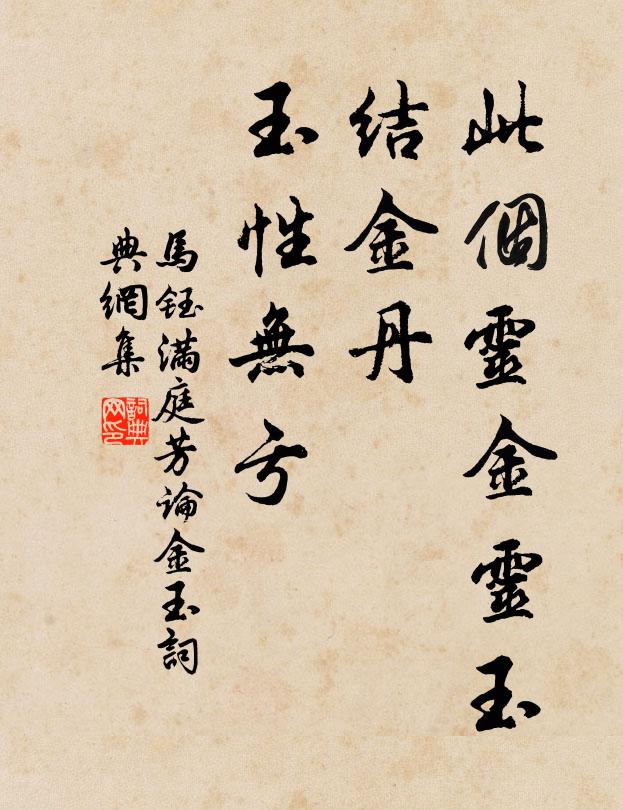 此個靈金靈玉
結金丹
玉性無亏
馬鈺满庭芳論金玉詞
典網集
詞典網印